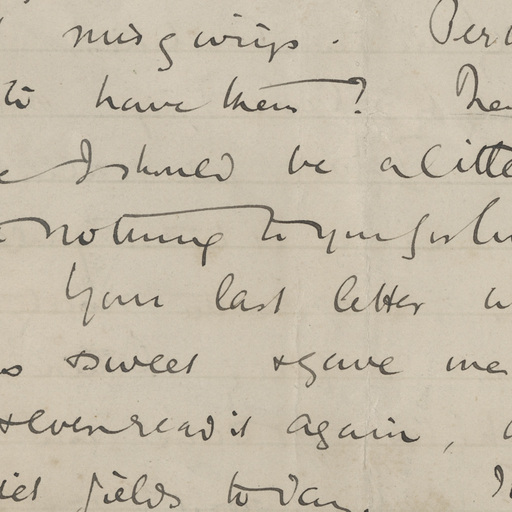 misgivings. Per
to have them? The
I should be a little
nothing to your
Your last letter w
so sweet & gave me
& even read it again,
fields today. I